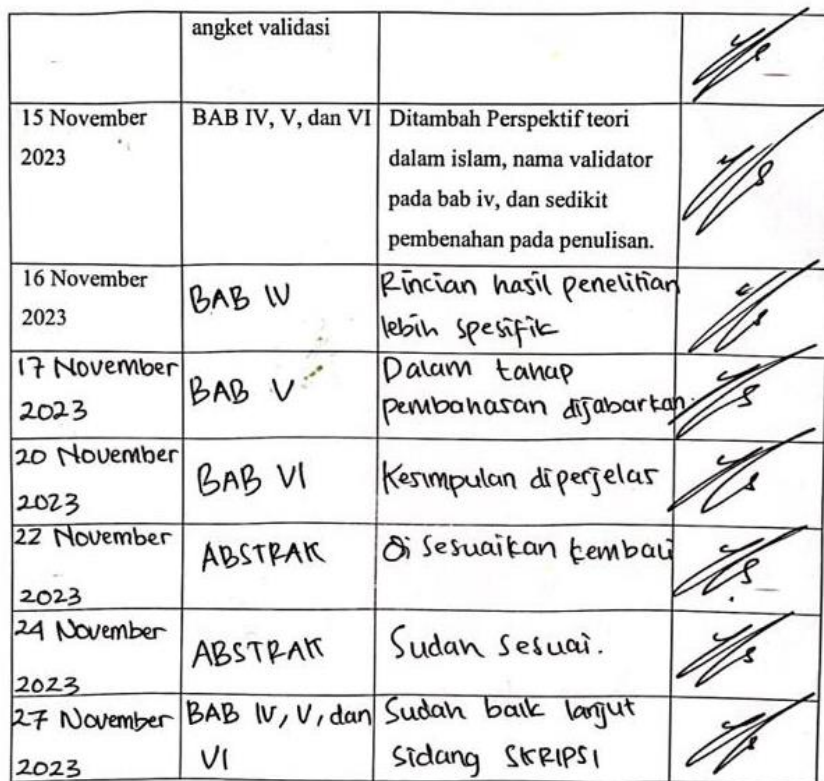 angket validasi
15 November
2023
BAB IV, V, dan VI
Ditambah Perspektif teori
dalam islam, nama validator
pada bab iv, dan sedikit
pembenahan pada penulisan.
16 November
2023
BAB IV
Rincian hasil penelitian
lebih spesifik
17 November
2023
BAB V
Dalam tahap
pembahasan dijabarkan.
20 November
2023
BAB VI
Kesimpulan diperjelas
22 November
2023
ABSTRAK
Di sesuaikan kembali
24 November
2023
ABSTRAK
Sudah sesuai.
27 November
2023
BAB IV, V, dan
VI
Sudah baik lanjut
sidang SKRIPSI